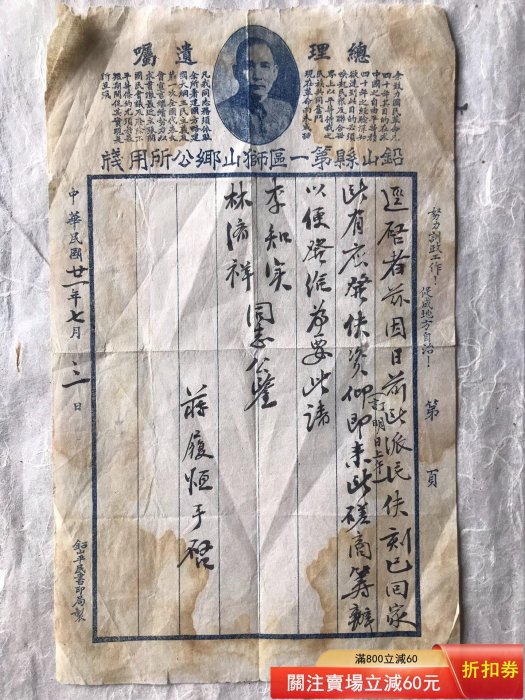 總理遺囑
余致力國民革命凡
四十年其目的在求
中國之自由平等積
四十年之經驗深知
欲達到此目的必須
喚起民眾及聯合世
界上以平等待我之
民族共同奮鬥
現在革命尚未成功
凡我同志務須依照
余所著建國方略建
國大綱三民主義及
第一次全國代表大
會宣言繼續努力以
求貫徹最近主張開
國民會議及廢除不
平等條約尤須於最
短期間促其實現是
所至囑
鉛山縣第一區獅山鄉公所用牋
努力訓政工作！促成地方自治！
第 頁
逕啓者茲因日前此派民伕刻已回家
此有應發伕資仰即於明日上午來此磋商籌辦
以便發給為要此請
李知實
林濟祥 同志公鑒
蔣履恒手啓
中華民國廿一年七月三日
鉛山平民書印局製
滿800立減60
關注賣場立減60元
折扣券